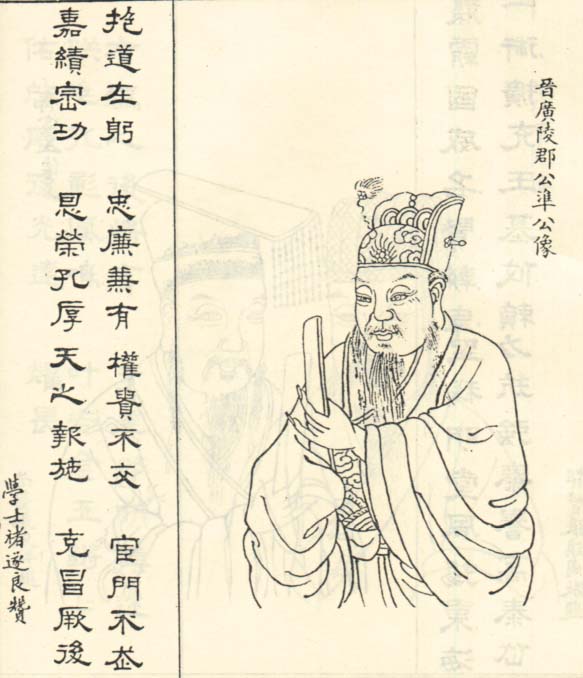 晉廣陵郡公準公像
抱道在躬 忠廉兼有 權貴不交 宦門不走
嘉績密功 恩榮孔厚 天之報施 克昌厥後
學士褚遂良贊